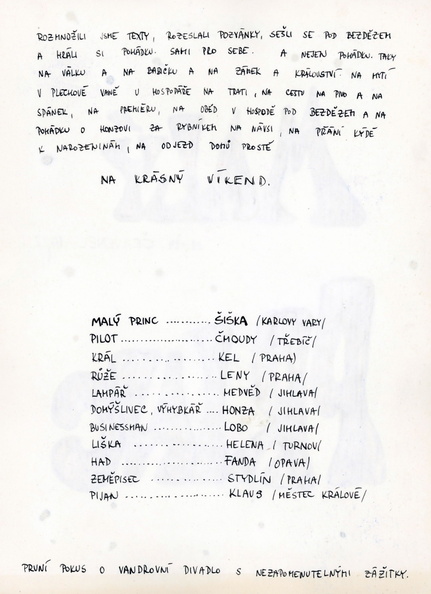 ROZMNOŽILI JSME TEXTY, ROZESLALI POZVÁNKY, SEŠLI SE POD BEZDĚZEM
A HRÁLI SI POHÁDKU. SAMI PRO SEBE. A NEJEN POHÁDKU. TAKY
NA VÁLKU A NA BABIČKU A NA ZÁMEK A KRÁLOVSTVÍ. NA MYTÍ
V PLECHOVÉ VANĚ U HOSPODÁŘE NA TRATI, NA CESTU NA PIVO A NA
SPÁNEK, NA PREMIÉRU, NA OBĚD V HOSPODĚ POD BEZDĚZEM A NA
POHÁDKU O HONZOVI ZA RYBNÍKEM NA NÁVSI, NA PŘÁNÍ KÝDĚ
K NAROZENINÁM, NA ODJEZD DOMŮ PROSTĚ
NA KRÁSNÝ VÍKEND.
MALÝ PRINC ........... ŠIŠKA /KARLOVY VARY/
PILOT ..................... ČMOUDY /TŘEBÍČ/
KRÁL ...................... KEL /PRAHA/
RŮŽE ...................... LENY /PRAHA/
LAMPÁŘ .................. MEDVĚD /JIHLAVA/
DOMÝŠLIVEC, VÝHYBKÁŘ .... HONZA /JIHLAVA/
BUSINESSMAN ............. LOBO /JIHLAVA/
LIŠKA ..................... HELENA /TURNOV/
HAD ...................... FANDA /OPAVA/
ZEMĚPISEC ................ STYDLÍN /PRAHA/
PIJAN ..................... KLAUS /MĚSTEC KRÁLOVÉ/
PRVNÍ POKUS O VANDROVNÍ DIVADLO S NEZAPOMENUTELNÝMI ZÁŽITKY.